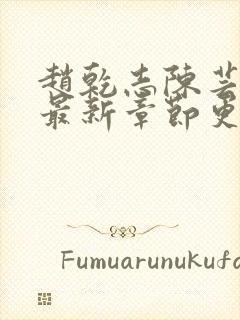 趙乾志陳芸
最新章節更
Fumuarunukufa